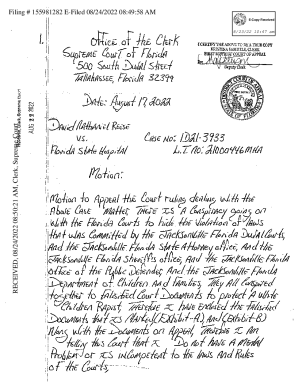 Filing # 155981282 E-Filed 08/24/2022 08:49:58 AM
E-Copy Received
8/23/22 10:07 am
1.
Office of the Clerk
Supreme Court of Florida
500 South Duval Street
Tallahassee, Florida 32399
I CERTIFY THE ABOVE TO BE A TRUE COPY
Deputy Clerk
Date: August 17, 2022
RECEIVED, 08/24/2022 08:50:21 AM, Clerk, Supreme Court
David Nathaniel Reese
vs
Case No: 1D21-3933
Florida State Hospital
L.T. No: 2100
Motion:
Motion to Appeal the Court ruling dealing with the
Above Case Matter, There is A Conspiracy going on
with the Florida Courts to hide the Violation of Laws
that was Committed by the Jacksonville Florida Duval Courts,
And the Jacksonville Florida State Attorney office, And the
Jacksonville Florida Sheriff's office, and the Jacksonville Florida
office of the Public Defender, And the Jacksonville Florida
Department of Children and Families, They All Conspired
together to Falsified Court Documents to protect A White
Children Rapist, Therefor I have Exhibited the Falsified
Documents that is Marked (Exhibit-A), and (Exhibit-B)
Along with the Documents on Appeal, Therefor I Am
telling this Court that I Do not have A Mental
Problem or Is inCompetent to the laws And Rules
of the Courts,